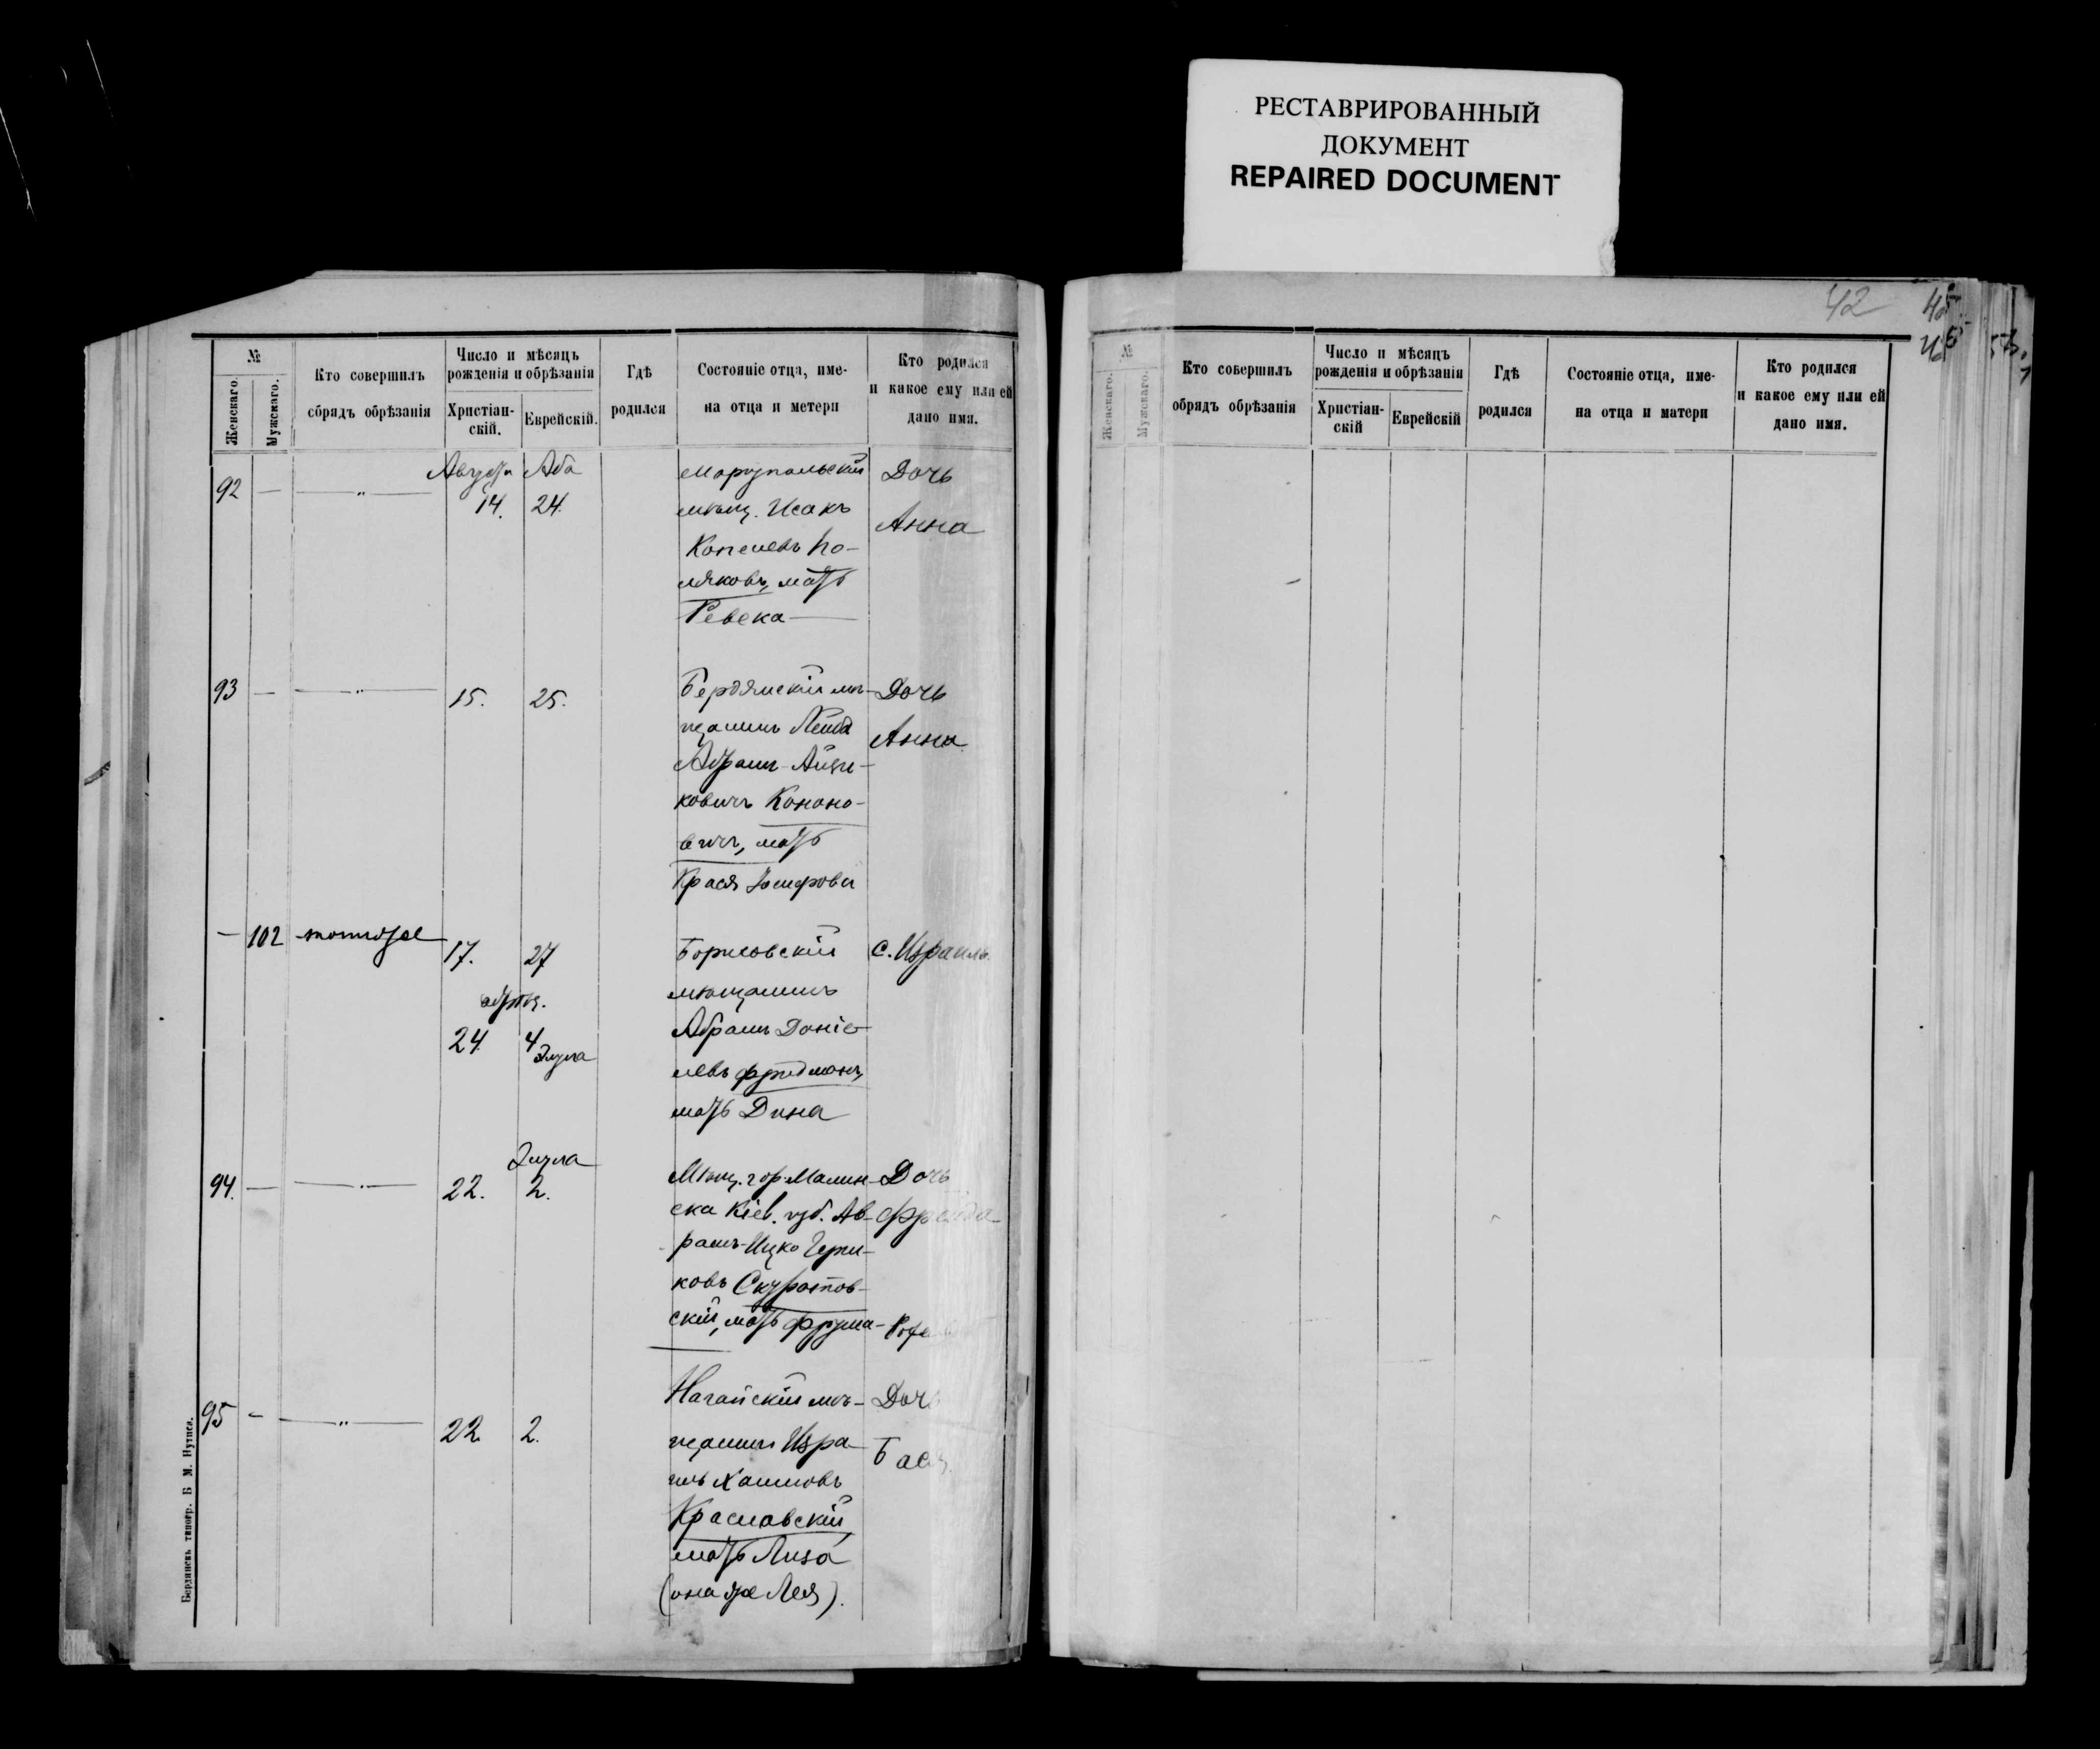 РЕСТАВРИРОВАННЫЙ
ДОКУМЕНТ
REPAIRED DOCUMENT
№
Женскаго.
Мужскаго.
Кто совершилъ
сбрядъ обрѣзанія
Число и мѣсяцъ
рожденія и обрѣзанія
Христіан-
скій.
Еврейскій.
Гдѣ
родился
Состояніе отца, име-
на отца и метери
Кто родился
и какое ему или ей
дано имя.
92 — —„— Августа 14. Аба 24.
Маріупольскій
мѣщ. Исакъ
Копелевъ По-
ляковъ, мать
Ревека —
Дочь
Анна
93 — —„— 15. 25.
Бердянскій мѣ-
щанинъ Лейба
Абрамъ-Айзи-
ковичъ Кононо-
вичъ, мать
Крася
Дочь
Анна
— 102 тотъ же 17. 27
24. 4 Элула
Борисовскій
мѣщанинъ
Абрамъ Даніе-
левъ Фридманъ,
мать Дина
С. Израиль.
94. — —„— 22. Элула 2.
Мѣщ. гор. Малин-
ска Кіев. губ. Ав-
рамъ-Ицко
ковъ
скій, мать Фрума-
Дочь
Фрейда
95 — —„— 22. 2.
Ногайскій мѣ-
щанинъ Изра-
иль Хаимовъ
Краславскій
мать Лиза
(она же Лея).
Дочь
Бася.
Бердянскъ типогр. Б М. Нутиса.
42
45
№
Женскаго.
Мужскаго.
Кто совершилъ
обрядъ обрѣзанія
Число и мѣсяцъ
рожденія и обрѣзанія
Христіан-
скій
Еврейскій
Гдѣ
родился
Состояніе отца, име-
на отца и матери
Кто родился
и какое ему или ей
дано имя.